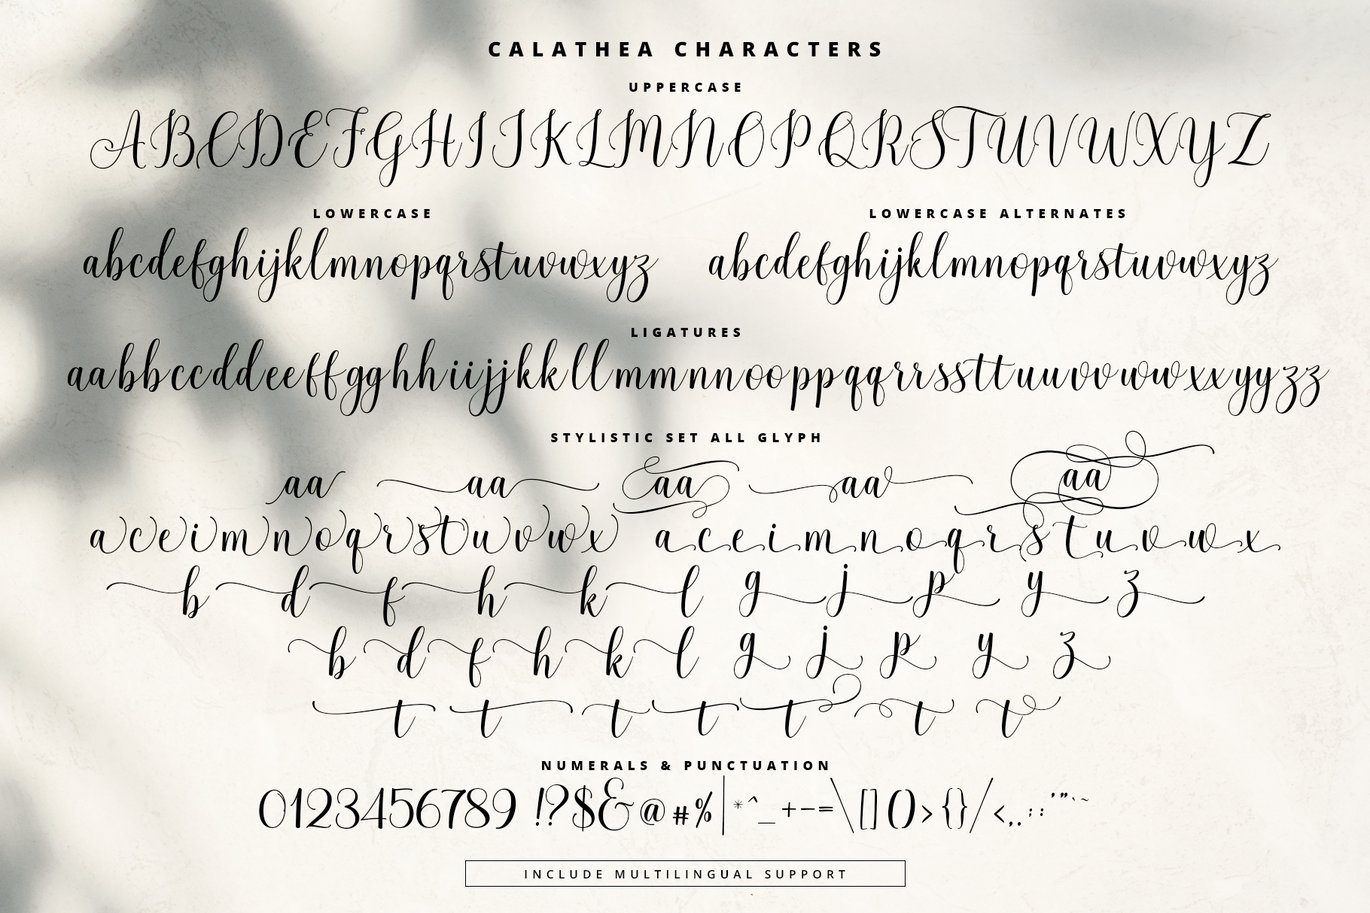 CALATHEA CHARACTERS
UPPERCASE
ABCDEFGHIJKLMNOPQRSTUVWXYZ
LOWERCASE
LOWERCASE ALTERNATES
abcdefghijklmnopqrstuvwxyz
abcdefghijklmnopqrstuvwxyz
LIGATURES
aabbccddeeffgghhiijjkkllmmnnooppqqrrssttuuvvwwxxyyzz
STYLISTIC SET ALL GLYPH
aa aa aa aa aa
a c e i m n o q r s t u v w x a c e i m n o q r s t u v w x
b d f h k l g j p y z
b d f h k l g j p y z
t t t t t t t
NUMERALS & PUNCTUATION
0123456789 !?$&@#%|*^_+-=\[]()>{}/<,.:;'"`~
INCLUDE MULTILINGUAL SUPPORT